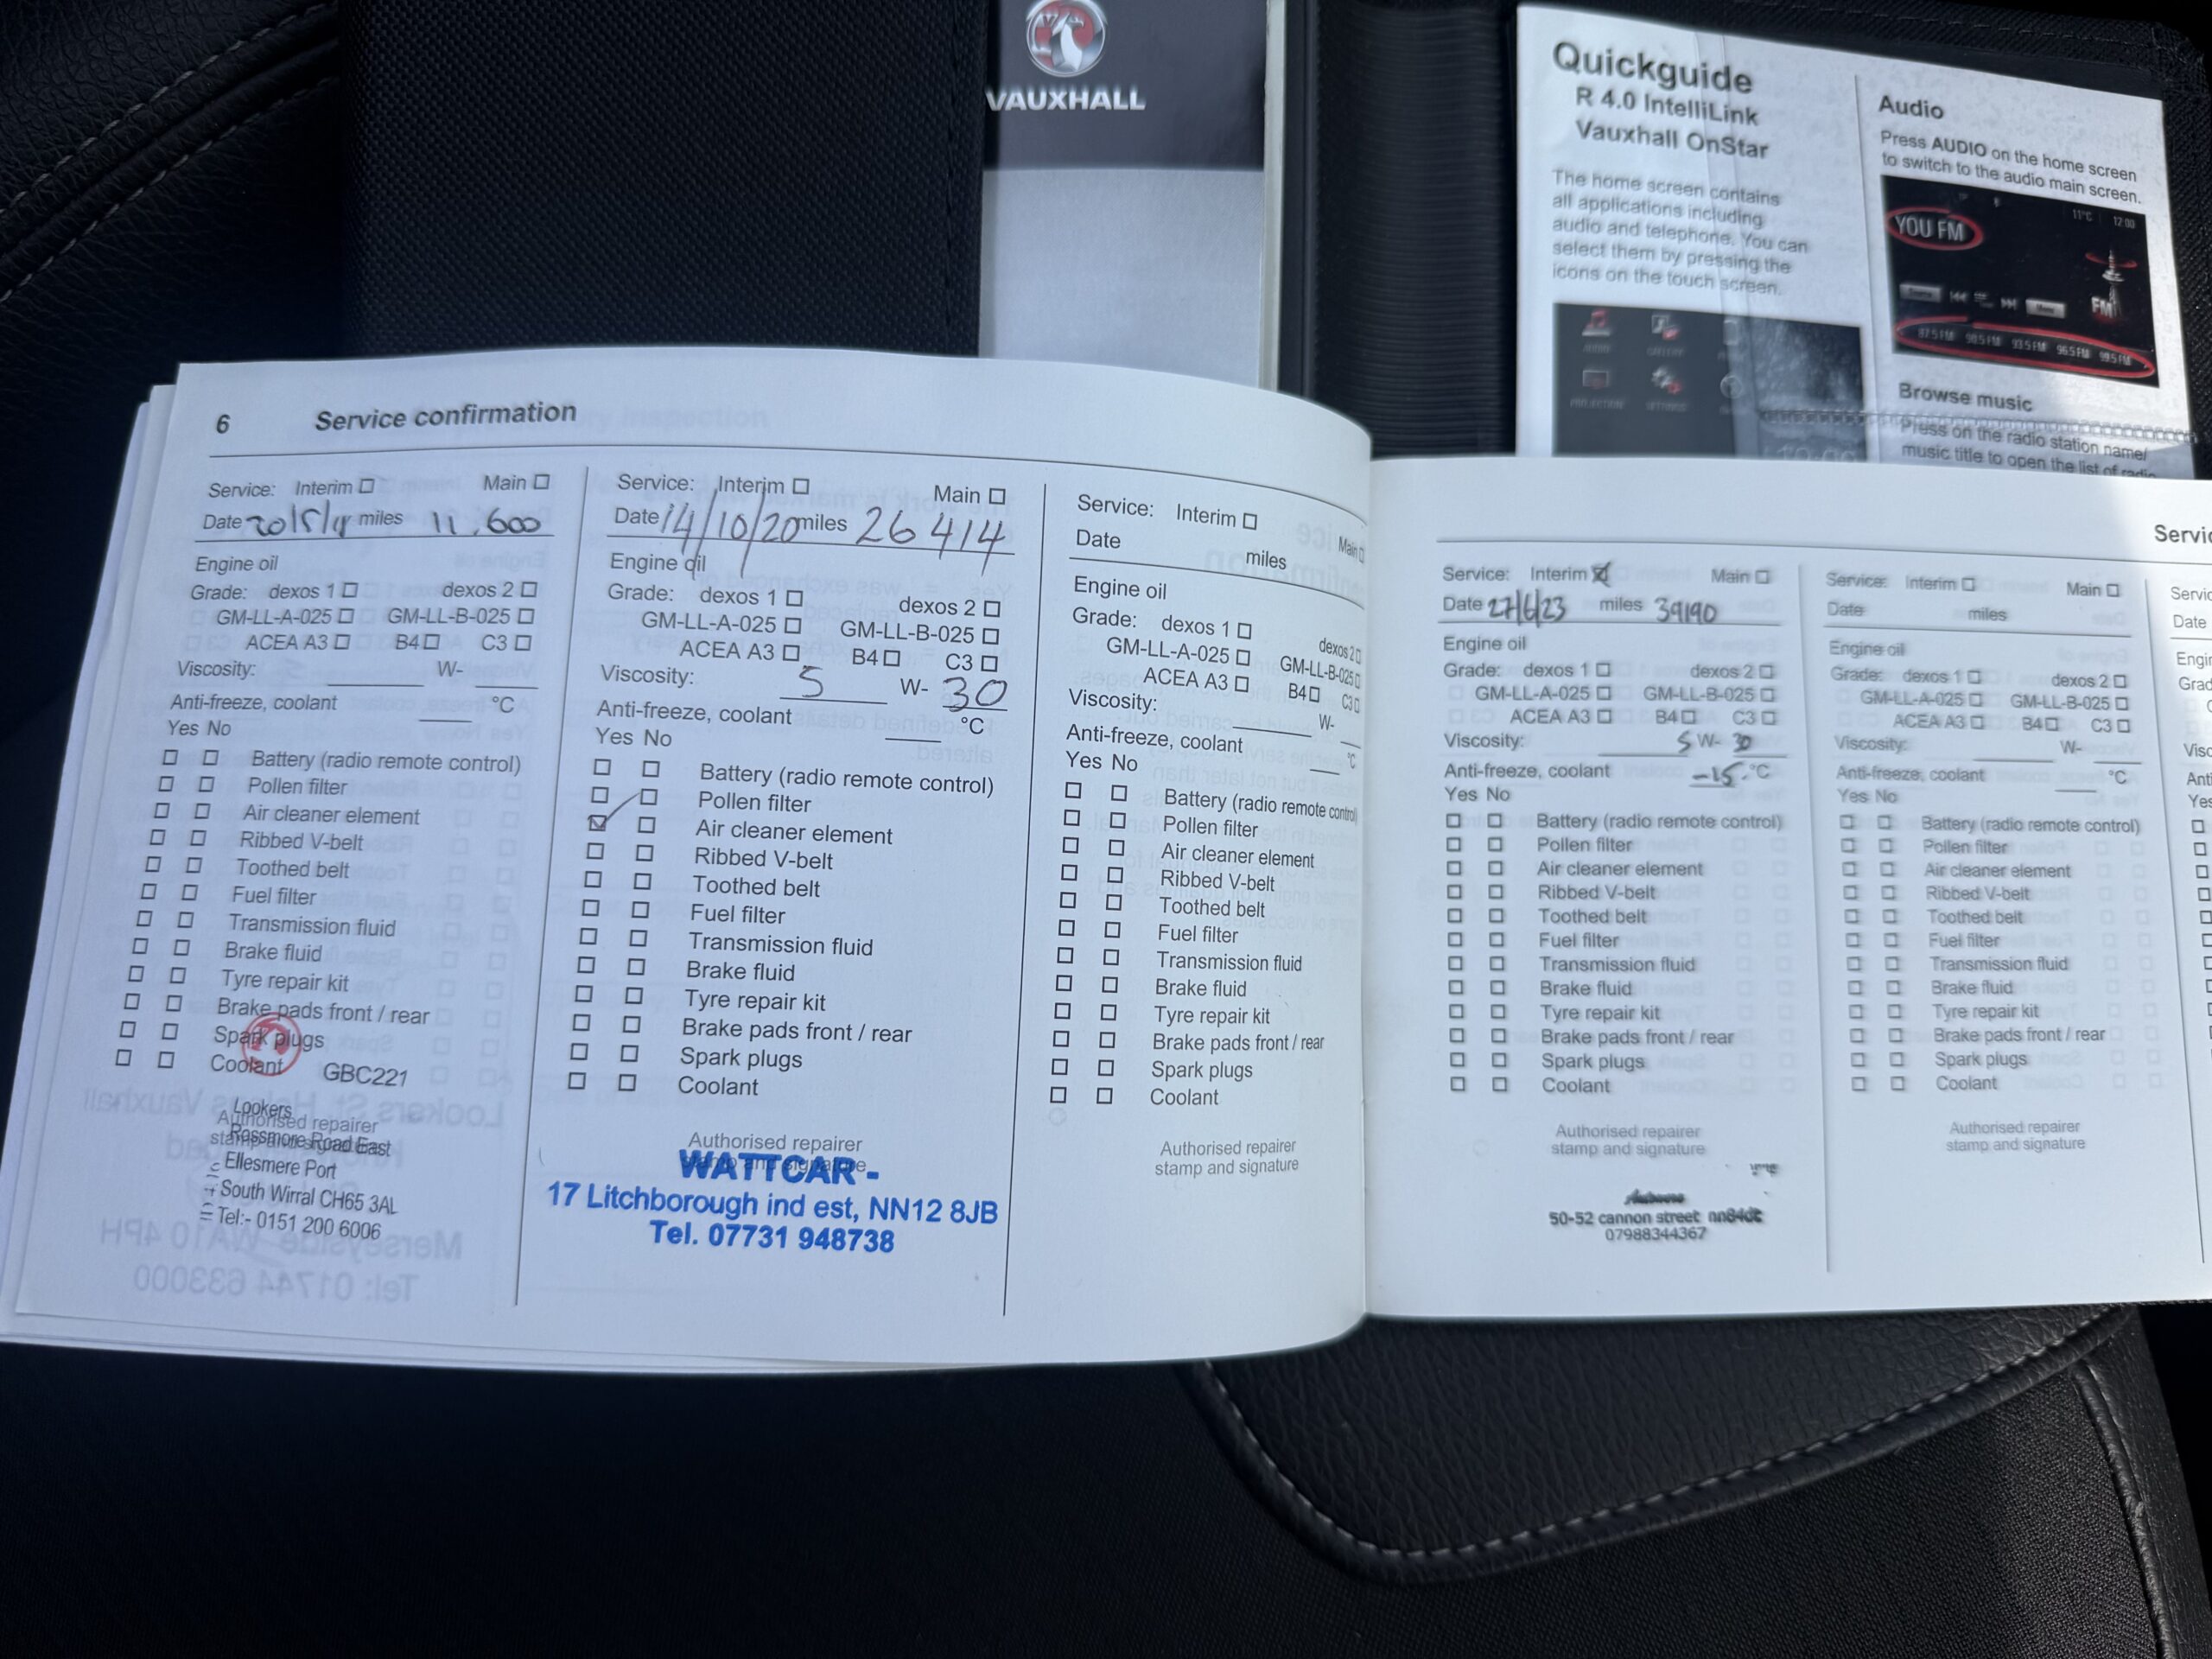 VAUXHALL
Quickguide
R 4.0 IntelliLink
Vauxhall OnStar
The home screen contains
all applications including
audio and telephone. You can
select them by pressing the
icons on the touch screen.
Audio
Press AUDIO on the home screen
to switch to the audio main screen.
11°C 12:00
YOU FM
FM
Browse music
Press on the radio station name/
music title to open the list of radio
6 Service confirmation
Service: Interim ☐ Main ☐
miles 11,600
Engine oil
Grade: dexos 1 ☐ dexos 2 ☐
GM-LL-A-025 ☐ GM-LL-B-025 ☐
ACEA A3 ☐ B4 ☐ C3 ☐
Viscosity: W-
Anti-freeze, coolant °C
Yes No
Battery (radio remote control)
Pollen filter
Air cleaner element
Ribbed V-belt
Toothed belt
Fuel filter
Transmission fluid
Brake fluid
Tyre repair kit
Brake pads front / rear
Spark plugs
Coolant
GBC221
Lookers
Authorised repairer
Rossmore Road East
Ellesmere Port
South Wirral CH65 3AL
Tel:- 0151 200 6006
Service: Interim ☐ Main ☐
Date 14/10/20 miles 26 414
Engine oil
Grade: dexos 1 ☐ dexos 2 ☐
GM-LL-A-025 ☐ GM-LL-B-025 ☐
ACEA A3 ☐ B4 ☐ C3 ☐
Viscosity: 5 W- 30
Anti-freeze, coolant °C
Yes No
Battery (radio remote control)
Pollen filter
Air cleaner element
Ribbed V-belt
Toothed belt
Fuel filter
Transmission fluid
Brake fluid
Tyre repair kit
Brake pads front / rear
Spark plugs
Coolant
Authorised repairer
stamp and signature
WATTCAR -
17 Litchborough ind est, NN12 8JB
Tel. 07731 948738
Service: Interim ☐ Main ☐
Date miles
Engine oil
Grade: dexos 1 ☐ dexos 2 ☐
GM-LL-A-025 ☐ GM-LL-B-025 ☐
ACEA A3 ☐ B4 ☐ C3 ☐
Viscosity: W-
Anti-freeze, coolant °C
Yes No
Battery (radio remote control)
Pollen filter
Air cleaner element
Ribbed V-belt
Toothed belt
Fuel filter
Transmission fluid
Brake fluid
Tyre repair kit
Brake pads front / rear
Spark plugs
Coolant
Authorised repairer
stamp and signature
Service: Interim ☒ Main ☐
Date 27/6/23 miles 39190
Engine oil
Grade: dexos 1 ☐ dexos 2 ☐
GM-LL-A-025 ☐ GM-LL-B-025 ☐
ACEA A3 ☐ B4 ☐ C3 ☐
Viscosity: 5 W- 30
Anti-freeze, coolant -15 °C
Yes No
Battery (radio remote control)
Pollen filter
Air cleaner element
Ribbed V-belt
Toothed belt
Fuel filter
Transmission fluid
Brake fluid
Tyre repair kit
Brake pads front / rear
Spark plugs
Coolant
Authorised repairer
stamp and signature
50-52 cannon street
07988344367
Service: Interim ☐ Main ☐
Date miles
Engine oil
Grade: dexos 1 ☐ dexos 2 ☐
GM-LL-A-025 ☐ GM-LL-B-025 ☐
ACEA A3 ☐ B4 ☐ C3 ☐
Viscosity: W-
Anti-freeze, coolant °C
Yes No
Battery (radio remote control)
Pollen filter
Air cleaner element
Ribbed V-belt
Toothed belt
Fuel filter
Transmission fluid
Brake fluid
Tyre repair kit
Brake pads front / rear
Spark plugs
Coolant
Authorised repairer
stamp and signature
Date